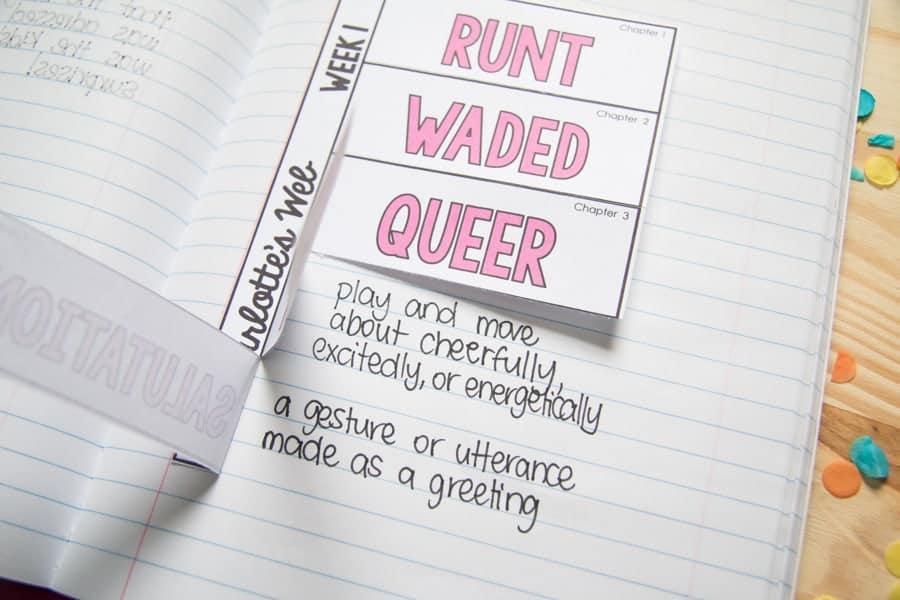 WEEK 1
Chapter 1
RUNT
Chapter 2
WADED
Chapter 3
QUEER
rlotte's Web
play and move
about cheerfully,
excitedly, or energetically
a gesture or utterance
made as a greeting
SALUTATION
was
was the kids
surprises!